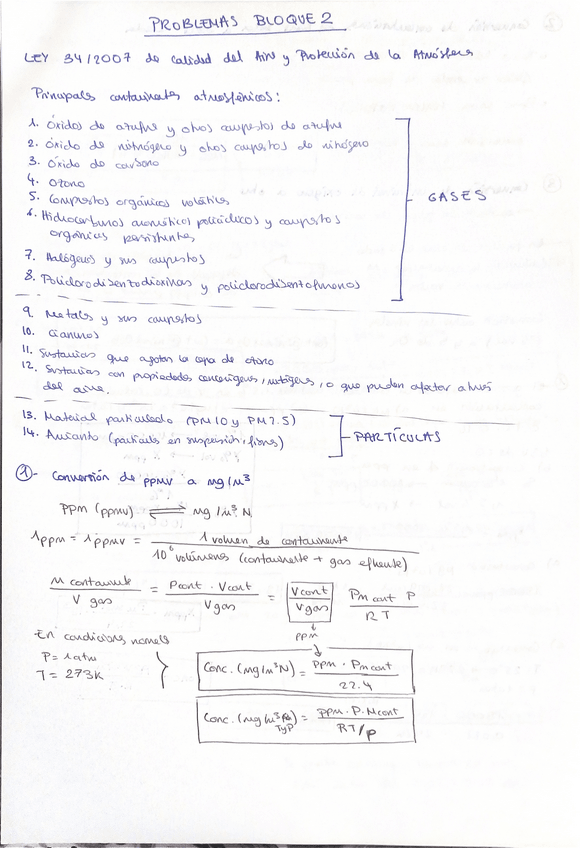 PROBLEMAS BLOQUE 2
LEY 34/2007 de Calidad del Aire y Protección de la Atmósfera
Principales contaminantes atmosféricos:
1. Óxidos de azufre y otros compuestos de azufre
2. Óxido de nitrógeno y otros compuestos de nitrógeno
3. Óxido de carbono
4. Ozono
5. Compuestos orgánicos volátiles
6. Hidrocarburos aromáticos policíclicos y compuestos
orgánicos persistentes
7. Halógenos y sus compuestos
8. Policlorodibenzodioxinas y policlorodibenzofuranos
GASES
9. Metales y sus compuestos
10. Cianuros
11. Sustancias que agotan la capa de ozono
12. Sustancias con propiedades cancerígenas, mutágenas, o que puedan afectar a través
del aire.
13. Material particulado (PM10 y PM2.5)
14. Amianto (partículas en suspensión, fibras)
PARTÍCULAS
① - Conversión de ppmv a mg/m³
ppm (ppmv) ⇌ mg/m³ N
1ppm = 1ppmv = 1 volumen de contaminante / 10⁶ volúmenes (contaminante + gas efluente)
m contaminante / V gas = ρcont · Vcont / Vgas = Vcont / Vgas · Pm cont P / RT
ppm
En condiciones normales
P = 1 atm
T = 273K
Conc. (mg/m³N) = ppm · Pm cont / 22.4
Conc. (mg/m³ TyP) = ppm · P · Mcont / RT/P